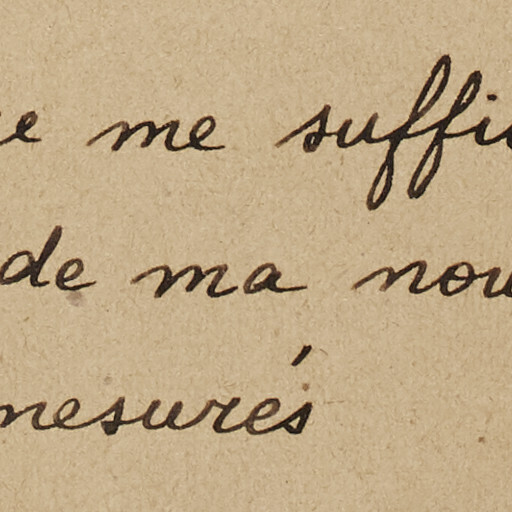 me suffi
de ma nou
mesurés